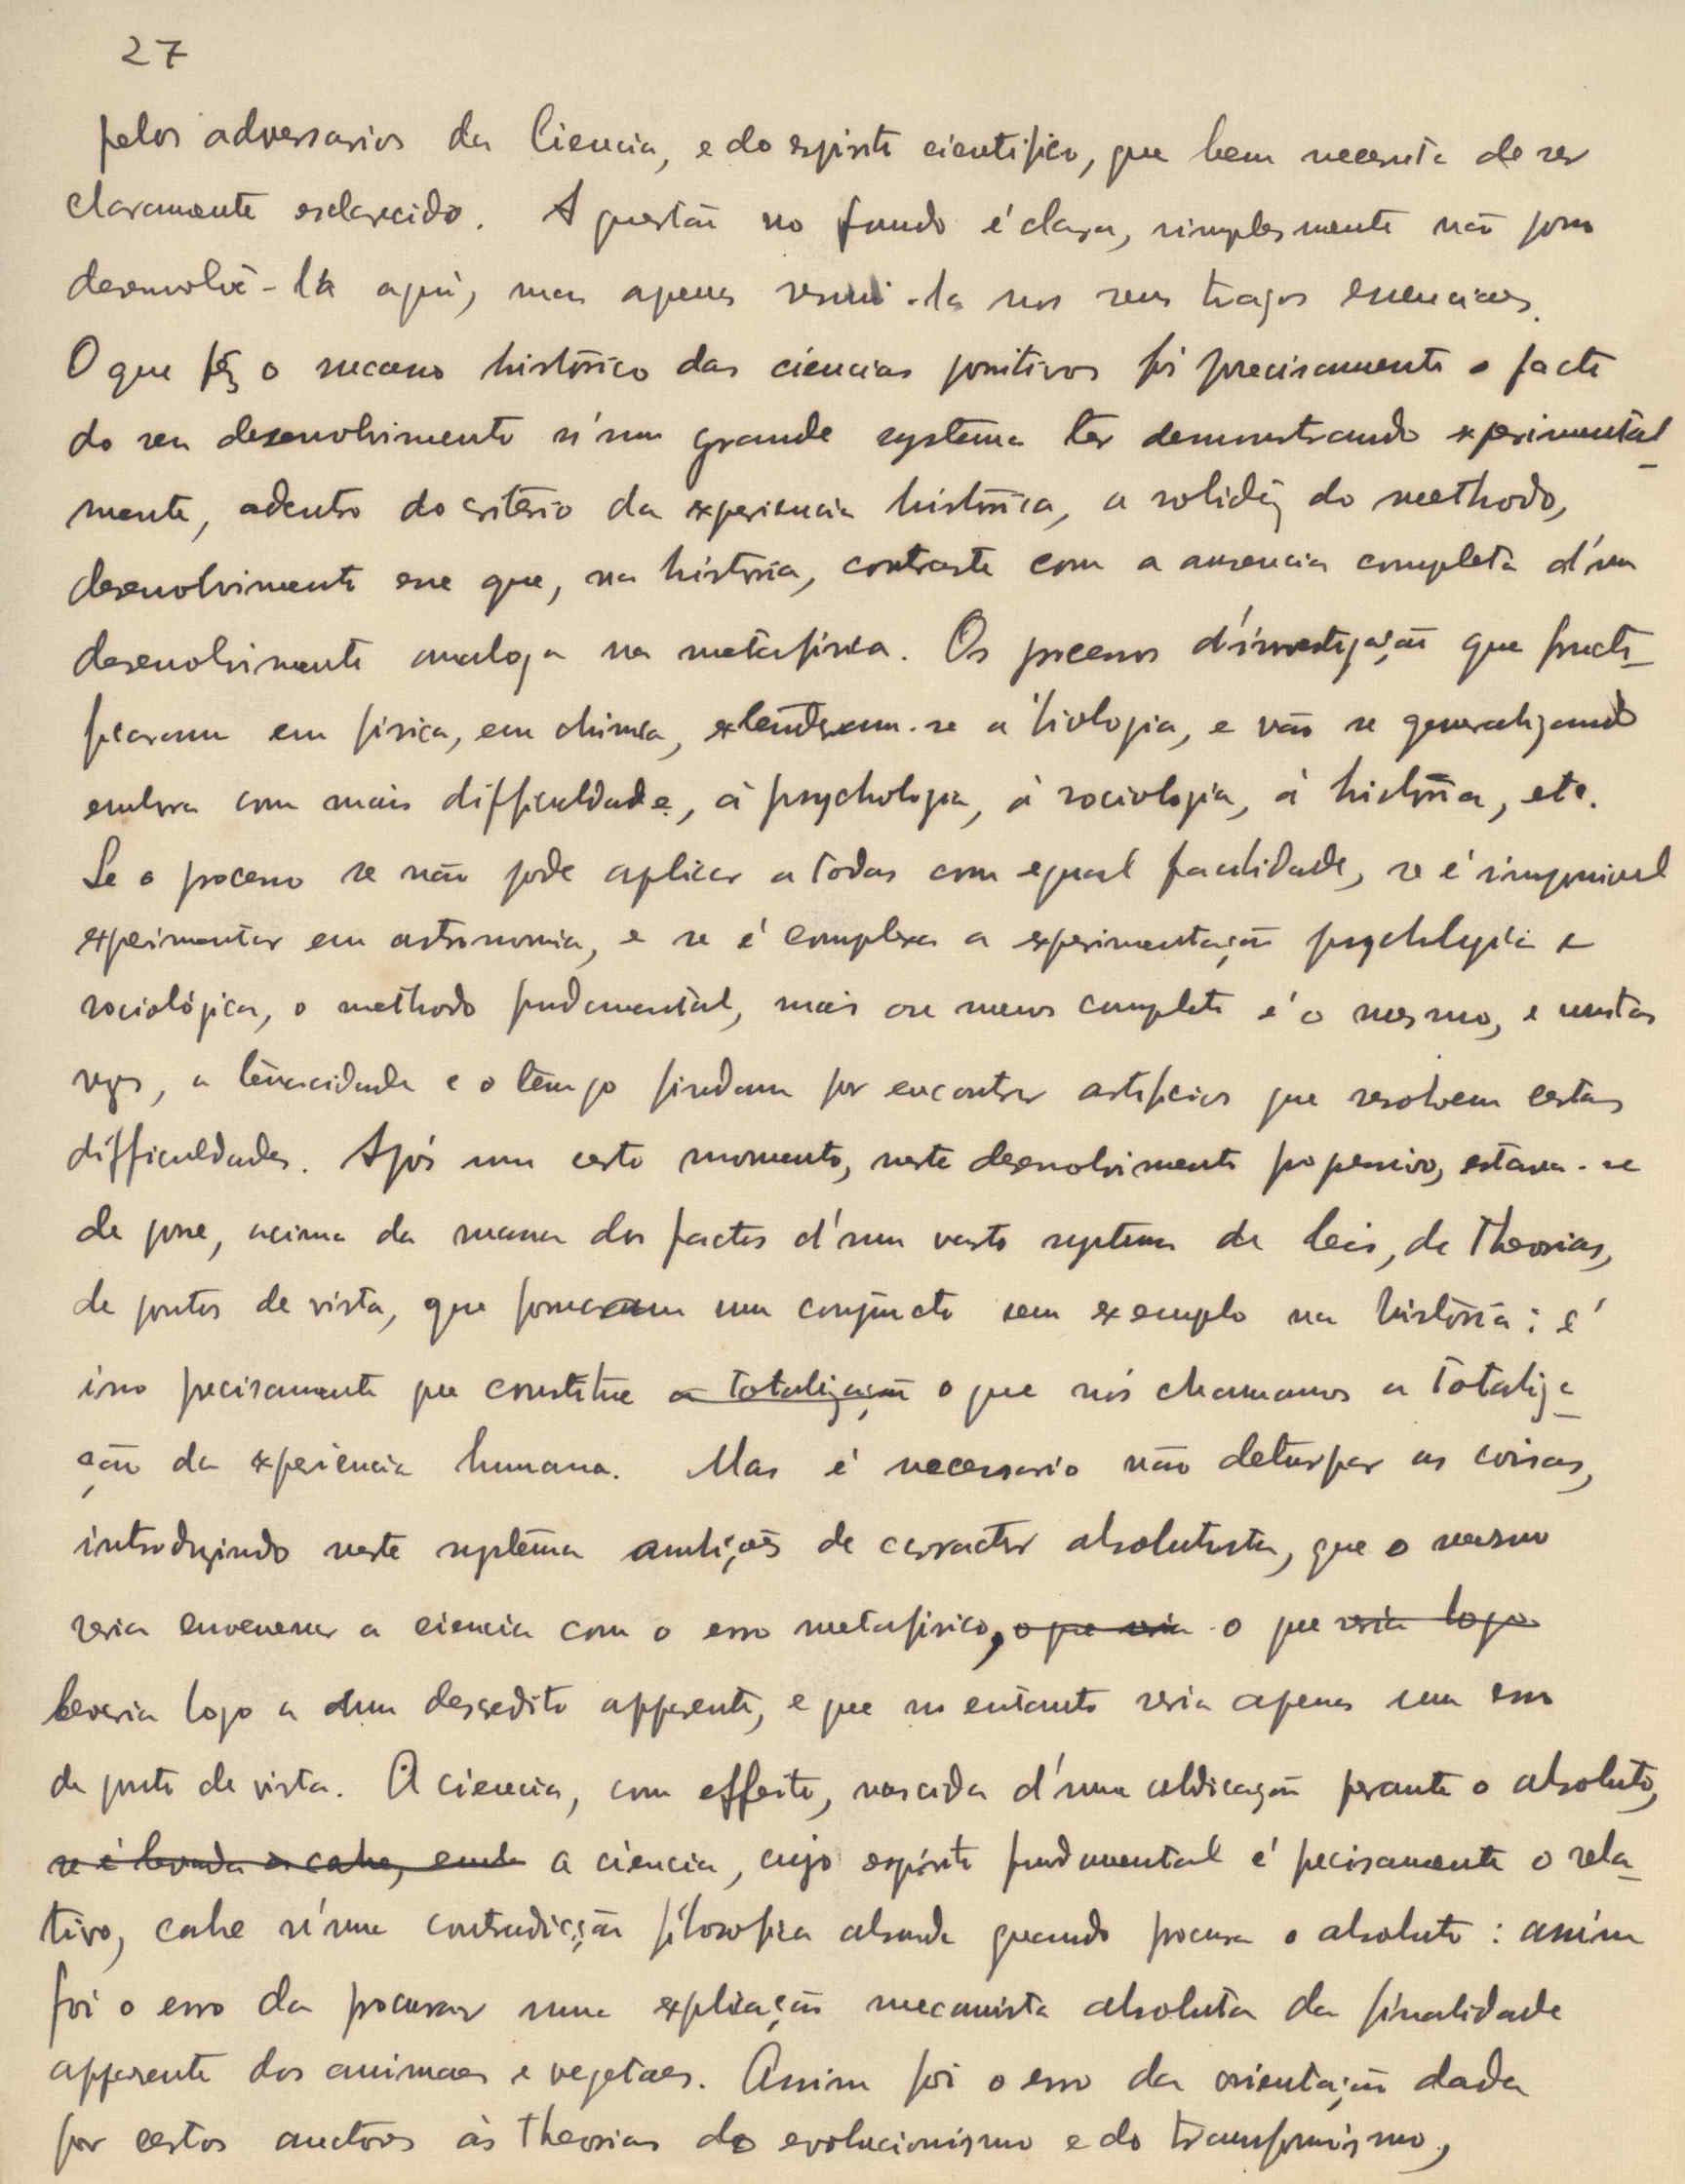 27
pelos adversarios da Ciencia, e do espirito cientifico, que bem necessita de ser
claramente esclarecido. A questão no fundo é clara, simplesmente não posso
desenvolvê-la aqui, mas apenas resumi-la nos seus traços essenciaes.
O que fêz o sucesso histórico das ciencias positivas foi precisamente o facto
do seu desenvolvimento n'um grande systema ter demonstrando experimental-
mente, adentro do critério da experiencia histórica, a solidêz do methodo,
desenvolvimento esse que, na história, contrasta com a ausencia completa d'um
desenvolvimento analogo na metafisica. Os processos d'investigação que fructi-
ficaram em fisica, em chimica, extenderam-se a biologia, e vão se generalizando
embora com mais difficuldade, á psychologia, á sociologia, á história, etc.
Se o processo se não pode aplicar a todas com egual facilidade, se é impossivel
experimentar em astronomia, e se é complexa a experimentação psychologica e
sociológica, o methodo fundamental, mais ou menos completo é o mesmo, e muitas
vezes, a tenacidade e o tempo findam por encontrar artificios que resolvem certas
difficuldades. Após um certo momento, neste desenvolvimento progressivo, estava-se
de posse, acima da massa dos factos d'um vasto systema de leis, de theorias,
de pontos de vista, que formaram um conjuncto sem exemplo na história: é
isso precisamente que constitue a totalização o que nós chamamos a totaliza-
ção da experiencia humana. Mas é necessario não deturpar as coisas,
introduzindo neste systema ambições de caracter absolutista, que o mesmo
seria envenenar a ciencia com o erro metafisico, o que seria o que seria logo
levaria logo a dum descredito apparente, e que no entanto seria apenas um erro
de ponto de vista. A ciencia, com effeito, nascida d'uma abdicação perante o absoluto,
se é levada a cabo, a ciencia, cujo espirito fundamental é precisamente o rela-
tivo, cahe n'uma contradicção filosofica absurda quando procura o absoluto: assim
foi o erro da procurar uma explicação mecanista absoluta da finalidade
apparente dos animaes e vegetaes. Assim foi o erro da orientação dada
por certos auctores às theorias do evolucionismo e do transformismo,